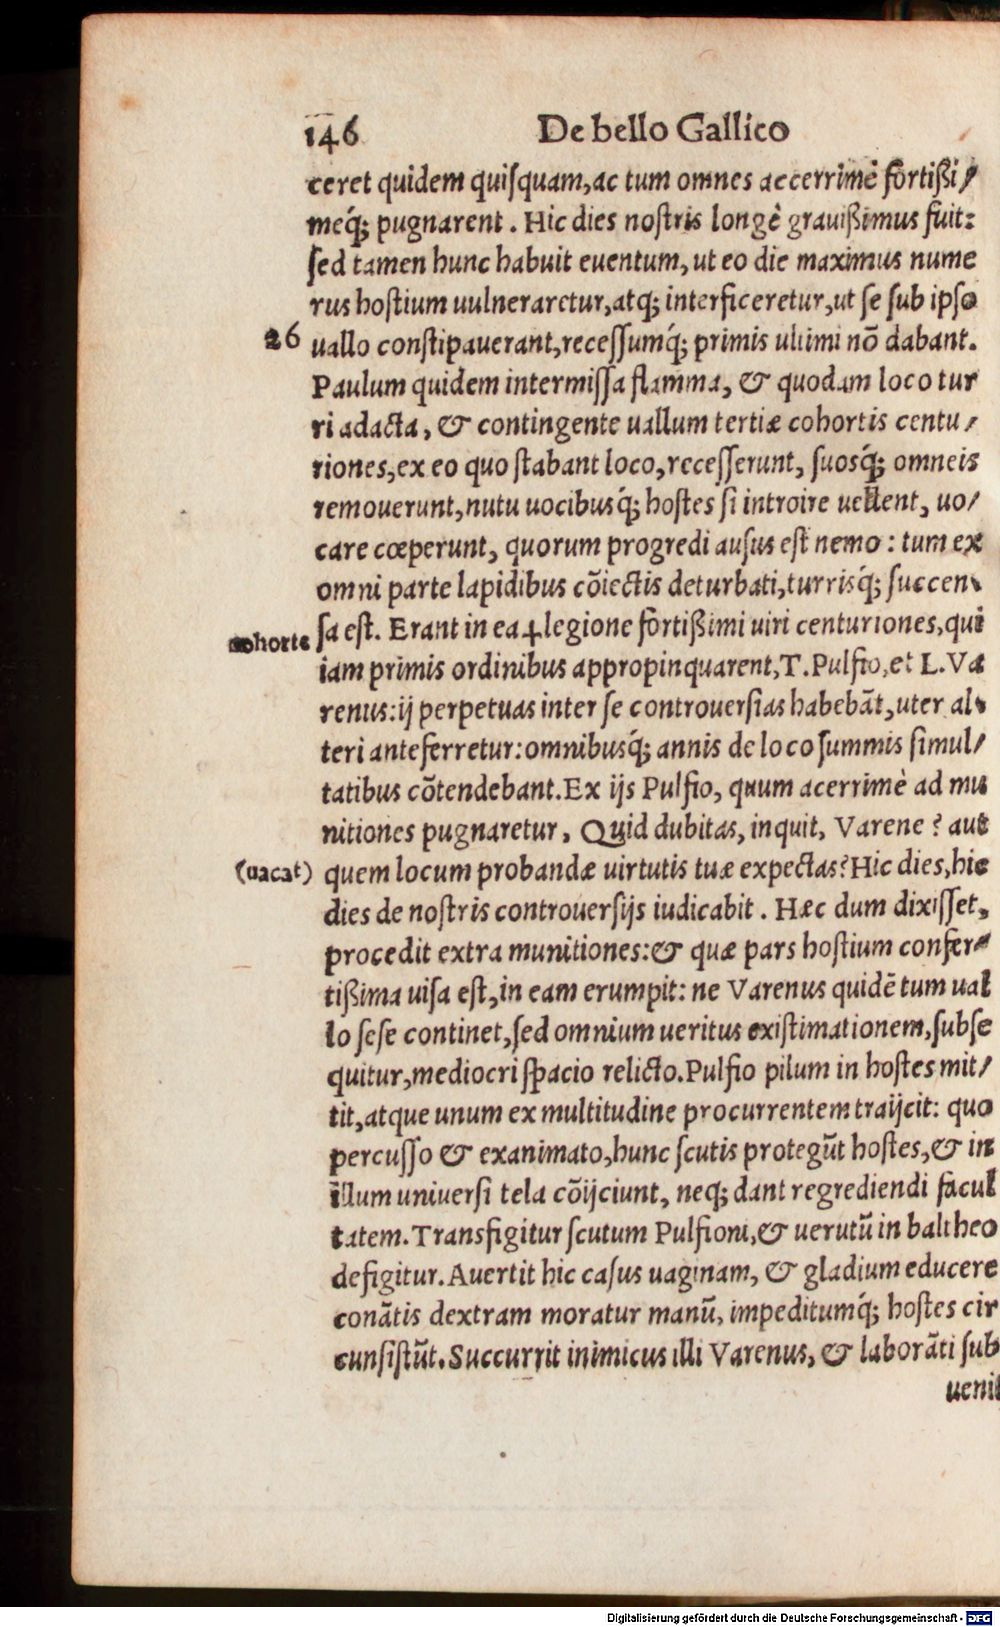 146 De bello Gallico
ceret quidem quiſquam, ac tum omnes accerrimè fortißi/
meq́; pugnarent. Hic dies noſtris longè grauißimus fuit:
ſed tamen hunc habuit euentum, ut eo die maximus nume
rus hoſtium uulneraretur, atq; interficeretur, ut ſe ſub ipſo
26 uallo conſtipauerant, receſſumq́; primis ultimi nō dabant.
Paulum quidem intermiſſa flamma, & quodam loco tur
ri adacta, & contingente uallum tertiæ cohortis centu/
riones, ex eo quo ſtabant loco, receſſerunt, ſuosq́; omneis
remouerunt, nutu uocibusq́; hoſtes ſi introire uellent, uo/
care cœperunt, quorum progredi auſus eſt nemo: tum ex
omni parte lapidibus cōiectis deturbati, turrisq́; ſuccen/
cohorte ſa eſt. Erant in ea ⸓ legione fortißimi uiri centuriones, qui
iam primis ordinibus appropinquarent, T. Pulfio, et L. Va
renus: ij perpetuas inter ſe controuerſias habebāt, uter al/
teri anteferretur: omnibusq́; annis de loco ſummis ſimul/
tatibus cōtendebant. Ex ijs Pulfio, quum acerrimè ad mu
nitiones pugnaretur, Quid dubitas, inquit, Varene? aut
(uacat) quem locum probandæ uirtutis tuæ expectas? Hic dies, hic
dies de noſtris controuerſijs iudicabit. Hæc dum dixiſſet,
procedit extra munitiones: & quæ pars hoſtium confer/
tißima uiſa eſt, in eam erumpit: ne Varenus quidē tum ual
lo ſeſe continet, ſed omnium ueritus exiſtimationem, ſubſe
quitur, mediocri ſpacio relicto. Pulfio pilum in hoſtes mit/
tit, atque unum ex multitudine procurrentem traijcit: quo
percuſſo & exanimato, hunc ſcutis protegūt hoſtes, & in
illum uniuerſi tela cōijciunt, neq; dant regrediendi facul
tatem. Transfigitur ſcutum Pulfioni, & uerutū in baltheo
defigitur. Auertit hic caſus uaginam, & gladium educere
conātis dextram moratur manū, impeditumq́; hoſtes cir
cunſiſtūt. Succurrit inimicus illi Varenus, & laborāti ſub
uenit
Digitalisierung gefördert durch die Deutsche Forschungsgemeinschaft - DFG